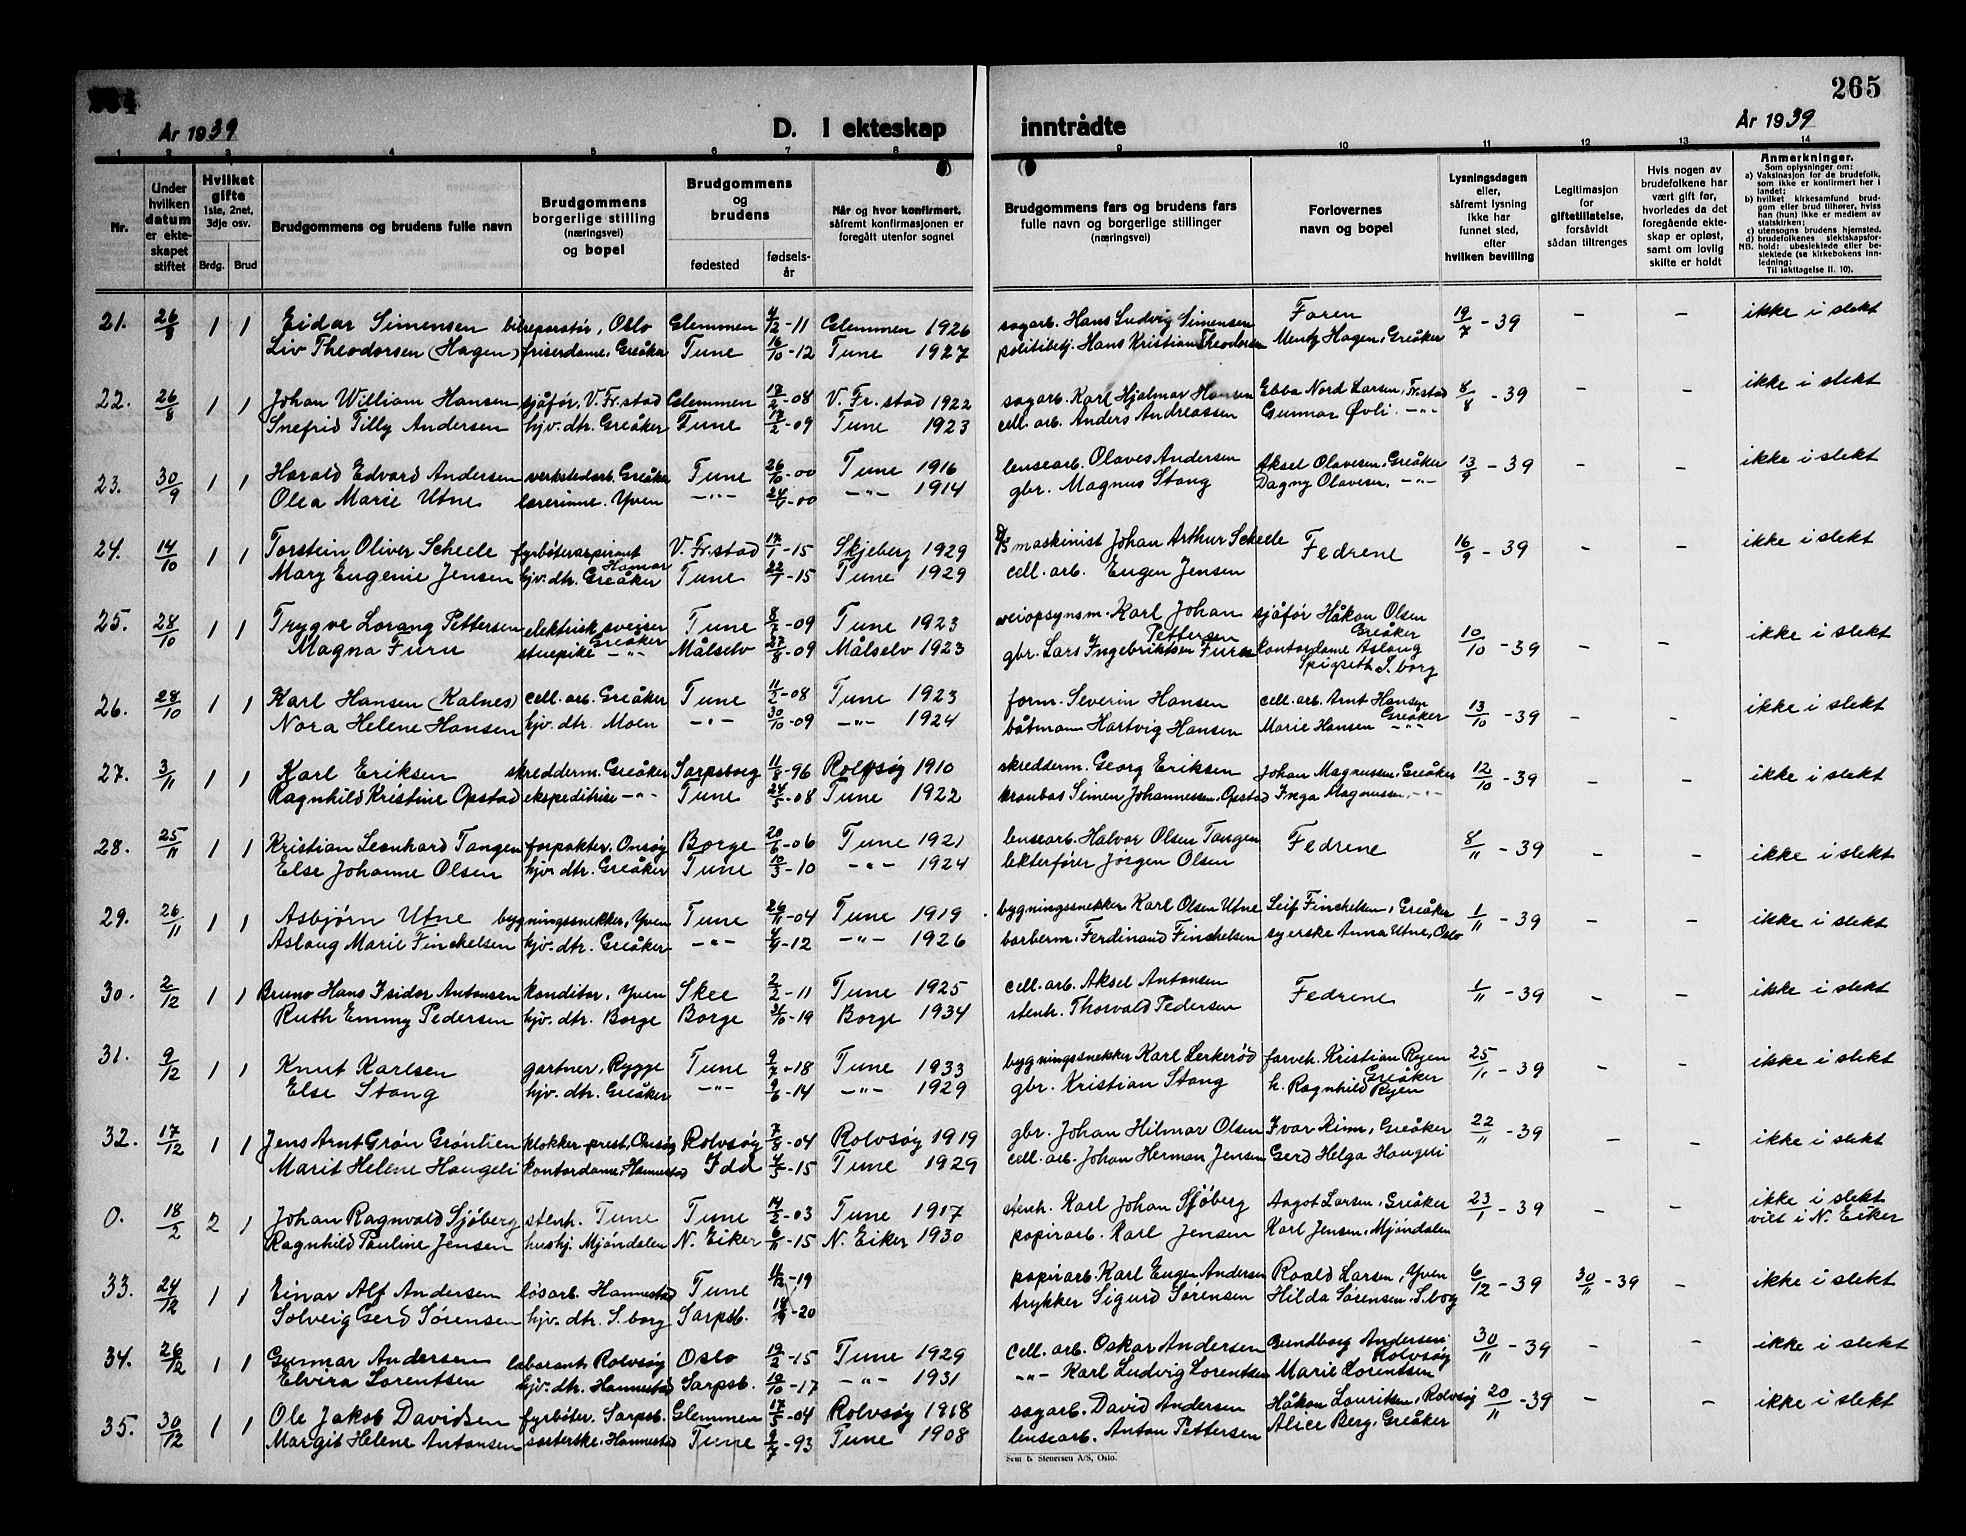 265
År 1939 D. I ekteskap inntrådte År 1939
1 2 3 4 5 6 7 8 9 10 11 12 13 14
Nr.
Under hvilken datum er ekteskapet stiftet
Hvilket gifte 1ste, 2net, 3dje osv.
Brdg. Brud
Brudgommens og brudens fulle navn
Brudgommens borgerlige stilling (næringsvei) og bopel
Brudgommens og brudens
fødested fødselsår
Når og hvor konfirmert, såfremt konfirmasjonen er foregått utenfor sognet
Brudgommens fars og brudens fars fulle navn og borgerlige stillinger (næringsvei)
Forlovernes navn og bopel
Lysningsdagen eller, såfremt lysning ikke har funnet sted, efter hvilken bevilling
Legitimasjon for giftetillatelse, forsåvidt sådan tiltrenges
Hvis nogen av brudefolkene har vært gift før, hvorledes da det foregående ekteskap er opløst, samt om lovlig skifte er holdt
Anmerkninger.
Som oplysninger om:
a) Vaksinasjon for de brudefolk, som ikke er konfirmert her i landet;
b) hvilket kirkesamfund brudgom eller brud tilhører, hviss han (hun) ikke er medlem av statskirken;
c) utensogns brudens hjemsted.
d) brudefolkenes slektskapsforhold: ubeslektede eller beslektede (se kirkebokens innledning:
NB. Til iakttagelse II. 10).
21. 26/8 1 1 Eidar Simensen bilreparatør, Oslo Glemmen 4/12-11 Glemmen 1926 sagarb. Hans Ludvig Simensen Faren 19/7-39 - - ikke i slekt
Liv Theodorsen (Hagen) friserdame, Greåker Tune 16/10-12 Tune 1927 politibetj. Hans Kristian Theodorsen Mentz Hagen, Greåker
22. 26/8 1 1 Johan William Hansen sjåfør, V. Fr.stad Glemmen 17/2-08 V. Fr.stad 1922 sagarb. Karl Hjalmar Hansen Ebba Nord Larsen, Fr.stad 8/8-39 - - ikke i slekt
Snefrid Tilly Andersen hjv. dtr. Greåker Tune 17/2-09 Tune 1923 cell. arb. Anders Andreassen Gunnar Øvli. -"-
23. 30/9 1 1 Harald Edvard Andersen verkstedarb. Greåker Tune 26/10-00 Tune 1916 lensearb. Olaves Andersen Aksel Olavesen, Greåker 13/9-39 - - ikke i slekt
Olea Marie Utne lærerinne. Yven -"- -00 -"- 1914 gbr. Magnus Stang Dagny Olavesen, -"-
24. 14/10 1 1 Torstein Oliver Scheele fyrbøteraspirant Hamar V. Fr.stad 17/1-15 Skjeberg 1929 D/S maskinist Johan Arthur Scheele Fedrene 16/9-39 - - ikke i slekt
Mary Eugenie Jensen hjv. dtr. Greåker Tune 22/7-15 Tune 1929 cell. arb. Eugen Jensen
25. 28/10 1 1 Trygve Lorang Pettersen elektrisk sveiser Greåker Tune 8/7-09 Tune 1923 veiopsynsm. Karl Johan Pettersen sjåfør Håkon Olsen Greåker 10/10-39 - - ikke i slekt
Magna Furu stuepike -"- Målselv 27/8-09 Målselv 1923 gbr. Lars Ingebriktsen Furu kontordame Aslaug Spigseth S.borg
26. 28/10 1 1 Karl Hansen (Kalnes) cell. arb. Greåker Tune -08 Tune 1923 form. Severin Hansen cell. arb. Arnt Hansen Greåker 13/10-39 - - ikke i slekt
Nora Helene Hansen hjv. dtr. Moen -"- 30/10-09 -"- 1924 båtmann Hartvig Hansen Marie Hansen -"-
27. 3/11 1 1 Karl Eriksen skredderm. Greåker Sarpsborg 11/8-96 Rolvsøy 1910 skredderm. Georg Eriksen Johan Magnussen, Greåker 12/10-39 - - ikke i slekt
Ragnhild Kristine Opstad ekspeditrise -"- Tune 24/5-08 Tune 1922 kranbas Simen Johannessen, Opstad Inga Magnussen, -"-
28. 25/11 1 1 Kristian Leonhard Tangen forpakter, Onsøy Borge 20/6-06 Tune 1921 lensearb. Halvor Olsen Tangen Fedrene 8/11-39 - - ikke i slekt
Else Johanne Olsen hjv. dtr. Greåker Tune 10/3-10 -"- 1924 lekterfører Jørgen Olsen
29. 26/11 1 1 Asbjørn Utne bygningssnekker, Yven Tune 26/11-04 Tune 1919 bygningssnekker Karl Olsen Utne Leif Finchelsen, Greåker 1/11-39 - - ikke i slekt
Aslaug Marie Finckelsen hjv. dtr. Greåker -"- -12 -"- 1926 barberm. Ferdinand Finchelsen syerske Anna Utne, Oslo
30. 2/12 1 1 Bruno Hans Isidor Antonsen konditor, Yven Skee 2/2-11 Tune 1925 cell. arb. Aksel Antonsen Fedrene 1/11-39 - - ikke i slekt
Ruth Emmy Pedersen hjv. dtr. Borge Borge -19 Borge 1934 stenh. Thorvald Pedersen
31. 9/12 1 1 Knut Karlsen gartner, Rygge Tune 9/7-18 Tune 1933 bygningssnekker Karl Lerkerød farveh. Kristian Ryen Greåker 25/11-39 - - ikke i slekt
Else Stang hjv. dtr. Greåker -"- 9/6-14 -"- 1929 gbr. Kristian Stang h. Ragnhild Ryen
32. 17/12 1 1 Jens Arnt Grøn Grønlien klokker-prest, Onsøy Rolvsøy 7/9-04 Rolvsøy 1919 gbr. Johan Hilmar Olsen Ivar Kinn, Greåker 22/11-39 - - ikke i slekt
Marit Helene Haugeli kontordame, Hannestad Idd 4/3-15 Tune 1929 cell. arb. Johan Herman Jensen Gerd Helga Haugeli
0. 18/2 2 1 Johan Ragnvald Sjøberg stenh. Tune Tune 14/2-03 Tune 1917 stenh. Karl Johan Sjøberg Aagot Larsen, Greåker 23/1-39 - - ikke i slekt
Ragnhild Pauline Jensen hushj. Mjøndalen N. Eiker 6/11-15 N. Eiker 1930 papirarb. Karl Jensen Karl Jensen, Mjøndalen viet i N. Eiker
33. 24/12 1 1 Einar Alf Andersen løsarb. Hannestad Tune 11/12-19 papirarb. Karl Eugen Andersen Roald Larsen, Yven 6/12-39 30/11-39 - ikke i slekt
Solveig Gerd Sørensen hjv. dtr. S.borg Sarpsb. -20 trykker Sigurd Sørensen Hilda Sørensen, S.borg
34. 26/12 1 1 Gunnar Andersen laborant Rolvsøy Oslo 19/2-15 Tune 1929 cell. arb. Oskar Andersen Gundborg Andersen Rolvsøy 30/11-39 - - ikke i slekt
Elvira Lorentsen hjv. dtr. Hannestad Sarpsb. 19/10-17 -"- 1931 -"- Karl Ludvig Lorentsen Marie Lorentsen
35. 30/12 1 1 Ole Jakob Davidsen fyrbøter. Sarpsb. Glemmen 17/5-04 Rolvsøy 1918 sagarb. David Andersen Håkon Lauritsen, Rolvsøy 20/11-39 - - ikke i slekt
Margit Helene Antonsen sorterske, Hannestad Tune 9/7-93 Tune 1908 lensearb. Anton Pettersen Alice Berg, Greåker
Sem & Stenersen A/S, Oslo.